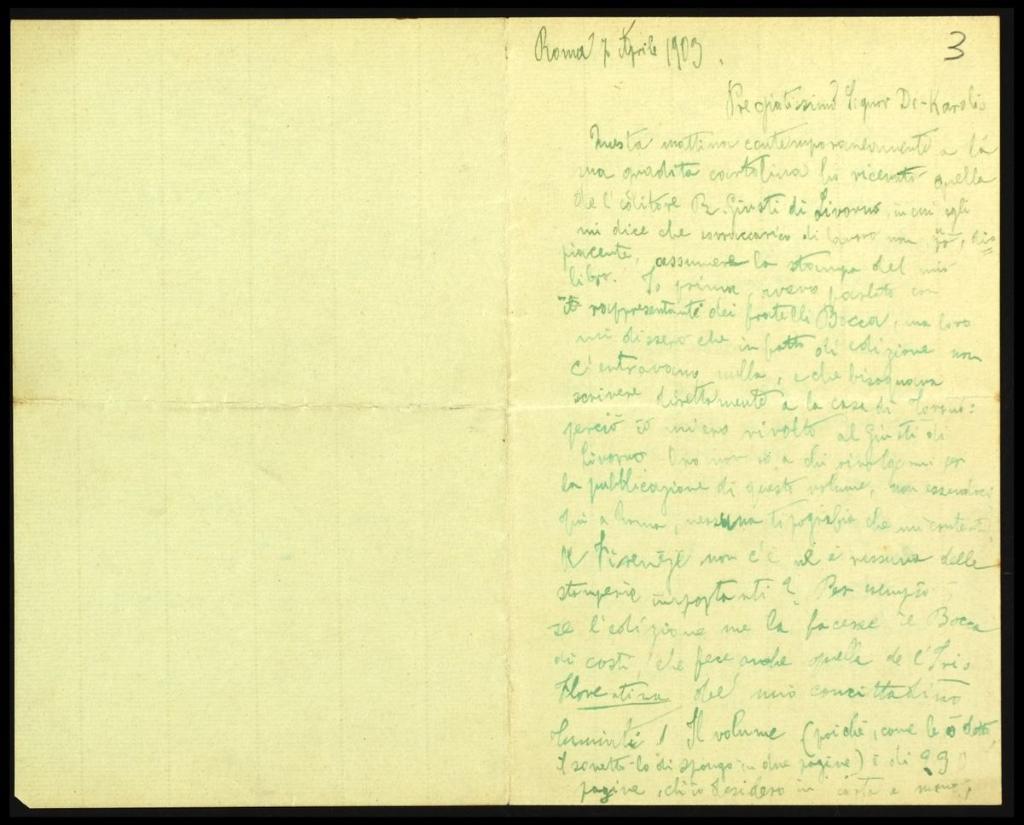 3
Roma 7 Aprile 1903.
Pregiatissimo Signor De-Karolis
Questa mattina contemporaneamente a la
sua gradita cartolina ho ricevuto quella
de l'editore R. Giusti di Livorno, in cui egli
mi dice che sovraccarico di lavoro non può, dis
piacente, assumere la stampa del mio
libro. Io prima, avevo parlato con
i rappresentanti dei fratelli Bocca, ma loro
mi dissero che in fatto di edizione non
c'entravano nulla, e che bisognava
scrivere direttamente a la casa di Torino:
perciò io mi ero rivolto al Giusti di
Livorno. Ora non so a chi rivolgermi per
la pubblicazione di questo volume, non essendoci
qui a Roma, nessuna tipografia che mi contenti.
A Firenze non c'è nessuna delle
stamperie importanti? Per esempio
se l'edizione me la facesse il Bocca
di costì, che fece anche quella de l'Iris
Florentina del mio concittadino
! Il volume (poiché, come le ò detto,
il sonetto lo dispongo in due pagine) è di 290
pagine, ch'io desidero in carta a mano,